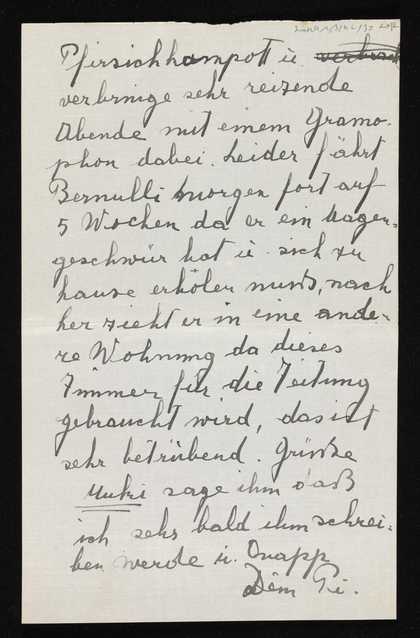 Pfirsichkompott u. verbrach
verbringe sehr reizende
Abende mit einem Gramo-
phon dabei. Leider fährt
Bernulli morgen fort auf
5 Wochen da er ein Magen-
geschwür hat u. sich zu
hause erhölen muss, nach
her zieht er in eine ande-
re Wohnung da dieses
Zimmer für die Zeitung
gebraucht wird, das ist
sehr betrübend. Grüsse
Muki sage ihm daß
ich sehr bald ihm schrei-
ben werde u.
Dein Pi.